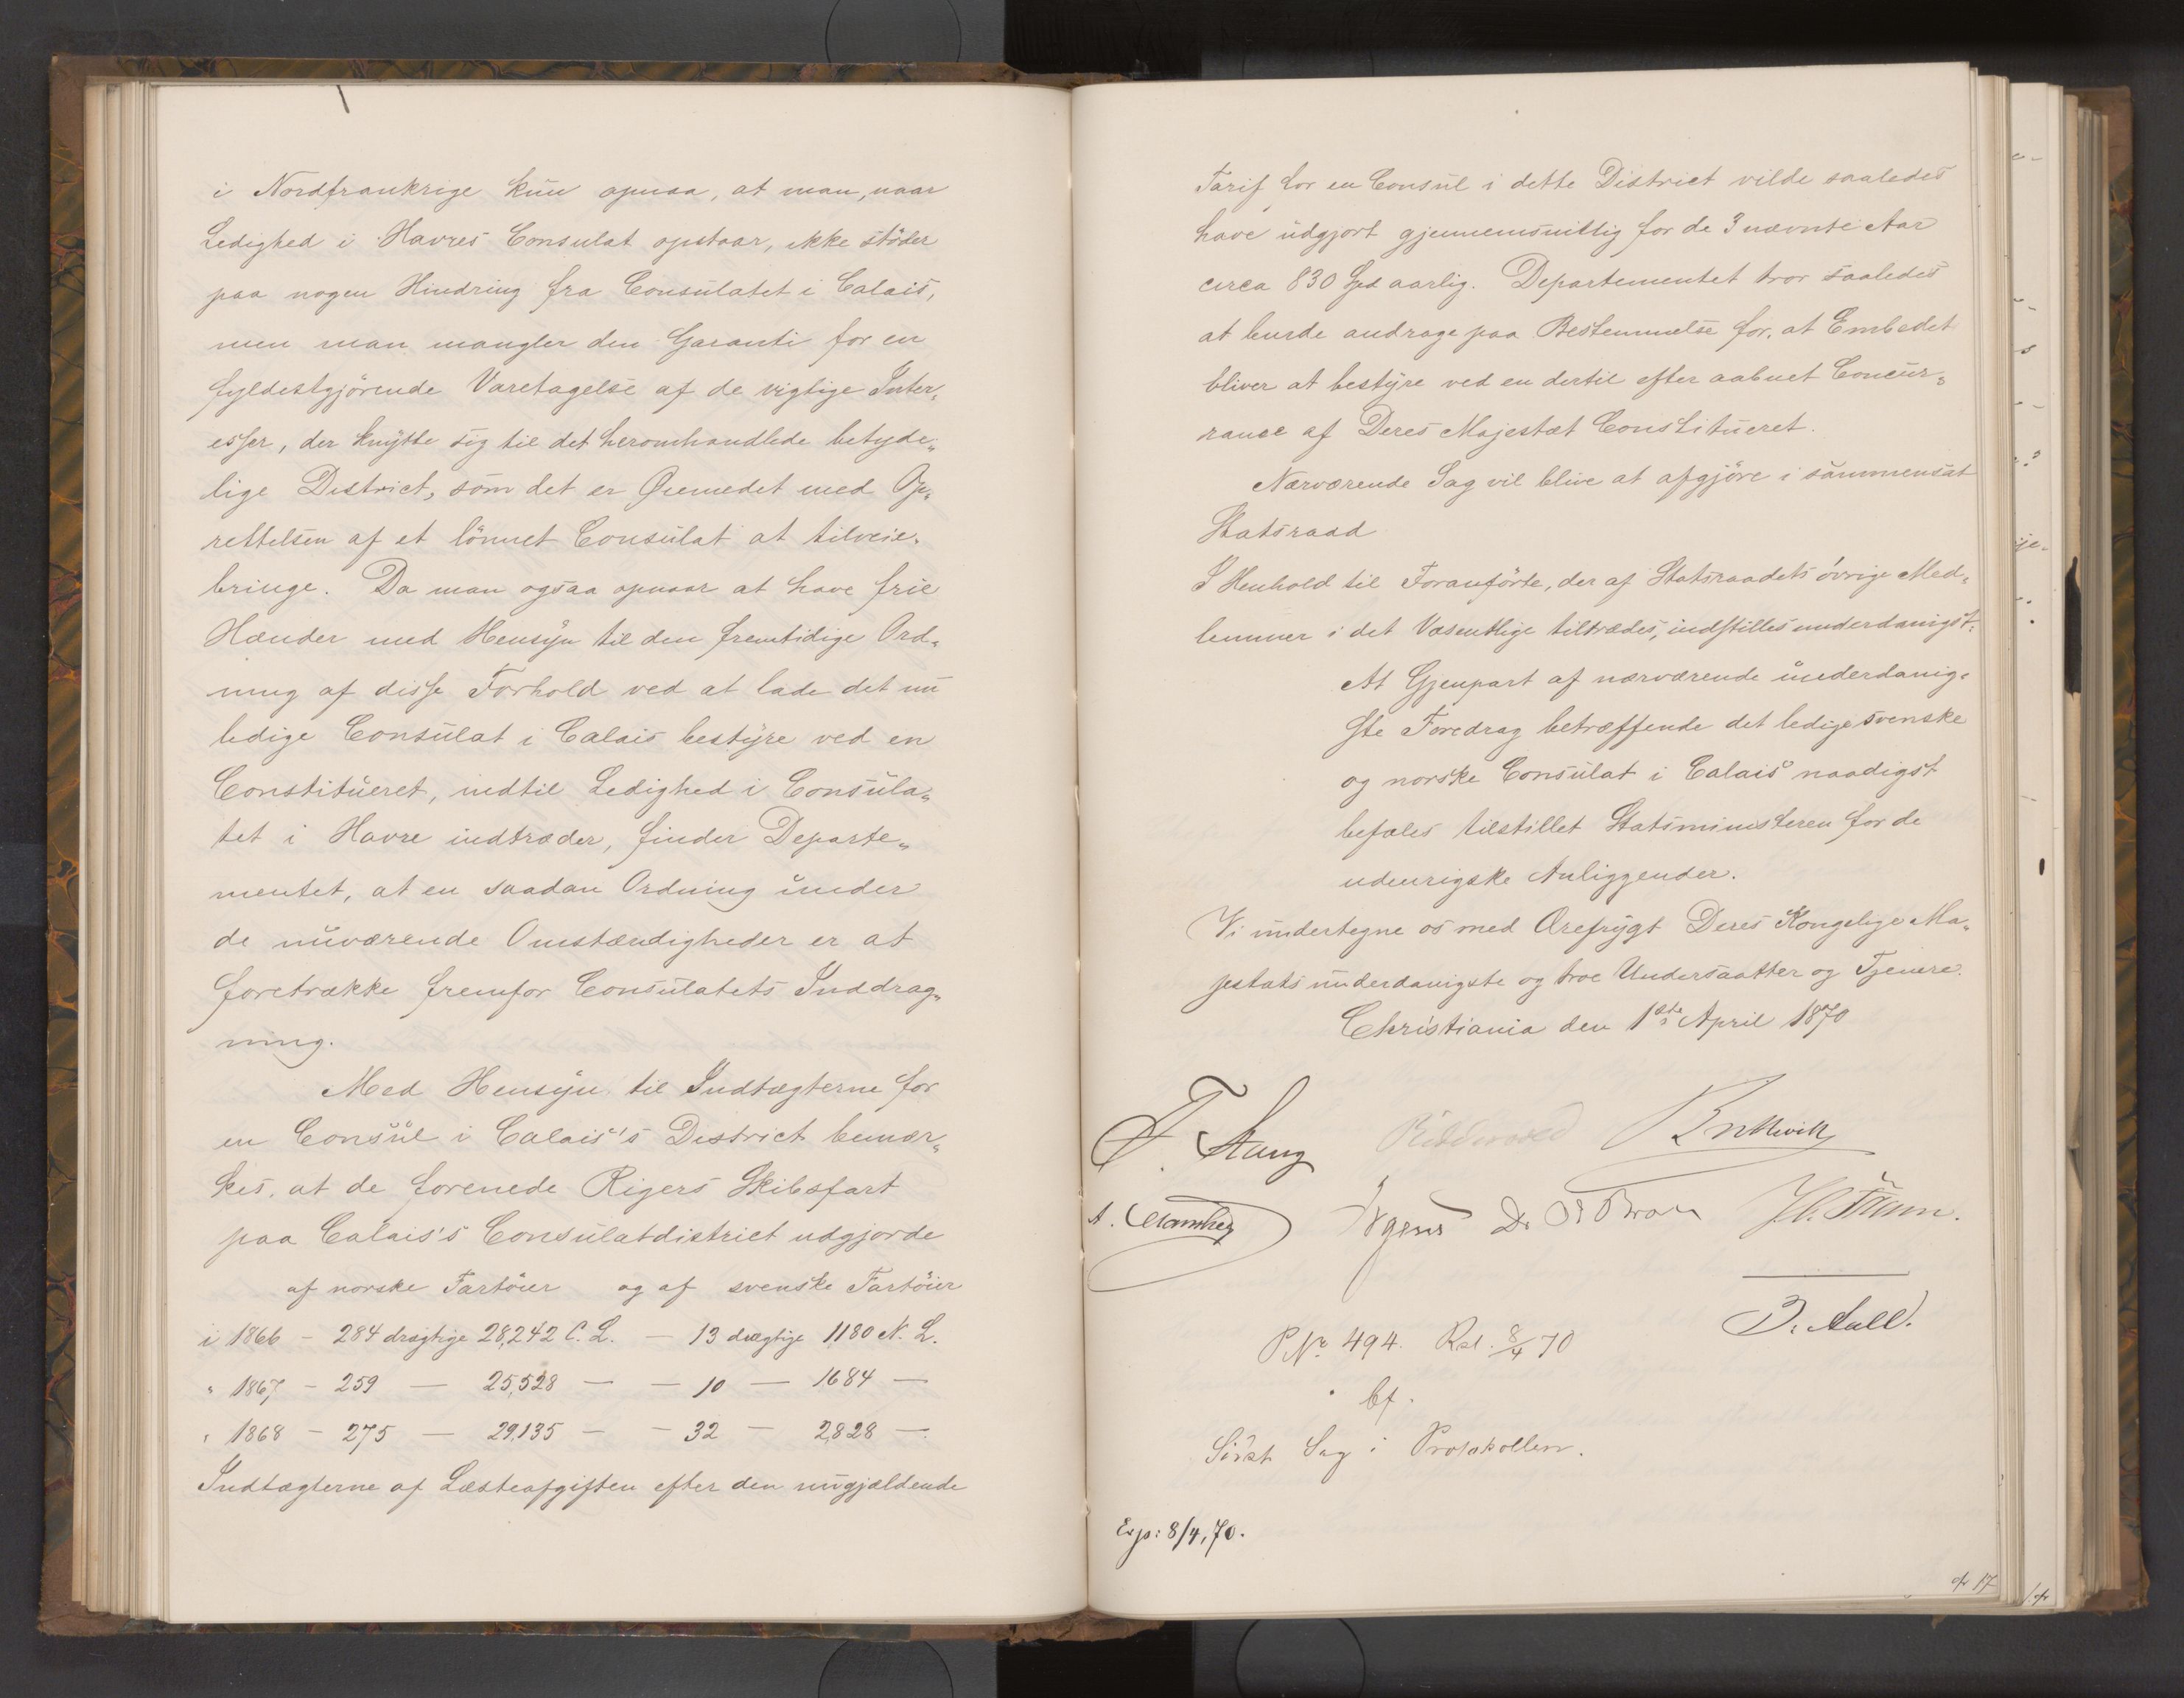 i Nordfrankrige kun opnaa, at man, naar
Ledighed i Havres Consulat opstaar, ikke støder
paa nogen Hindring fra Consulatet i Calais,
men man mangler den Garanti for en
fyldestgjørende Varetagelse af de vigtige Inter„
esser, der knytte sig til det heromhandlede betyde„
lige District, som det er Øiemedet med Op„
rettelsen af et lønnet Consulat at tilveie„
bringe. Da man ogsaa opnaar at have frie
Hænder med Hensyn til den fremtidige Ord„
ning af disse Forhold ved at lade det nu
ledige Consulat i Calais bestyre ved en
Constitueret, indtil Ledighed i Consula„
tet i Havre indtræder, finder Departe„
mentet, at en saadan Ordning under
de nuværende Omstændigheder er at
foretrække fremfor Consulatets Inddrag„
ning.
Med Hensyn til Indtægterne for
en Consul i Calais's District bemær„
kes, at de forenede Rigers Skibsfart
paa Calais's Consulatdistrict udgjorde
af norske Fartøier og af svenske Fartøier
i 1866 – 284 drægtige 28,242 C. L. — 13 drægtige 1180 N. L.
" 1867 – 259 — 25,528 — — 10 — 1684 —
" 1868 – 275 — 29,135 — — 32 — 2,828 —.
Indtægterne af Læsteafgiften efter den nugjældende
Tarif for en Consul i dette District vilde saaledes
have udgjort gjennemsnitlig for de 3 nævnte Aar
circa 830 Spd aarlig. Departementet tror saaledes
at burde andrage paa Bestemmelse for, at Embedet
bliver at bestyre ved en dertil efter aabnet Concur„
rance af Deres Majestæt Constitueret.
Nærværende Sag vil blive at afgjøre i sammensat
Statsraad
I Henhold til Foranførte, der af Statsraadets øvrige Med„
lemmer i det Væsentlige tiltrædes, indstilles underdanigst:
At Gjenpart af nærværende underdanig„
ste Foredrag betræffende det ledige svenske
og norske Consulat i Calais naadigst
befales tilstillet Statsministeren for de
udenrigske Anliggender.
Vi undertegne os med Ærefrygt Deres Kongelige Ma„
jestæts underdanigste og troe Undersaatter og Tjenere.
Christiania den 1ste April 1870
F. Stang Riddervold Bretteville
A. Irgens J. C. Thurn.
J. Aall.
P No 494. Rsl. 8/4 70
bf.
Sidst Sag i Protokollen.
Exp: 8/4, 70.